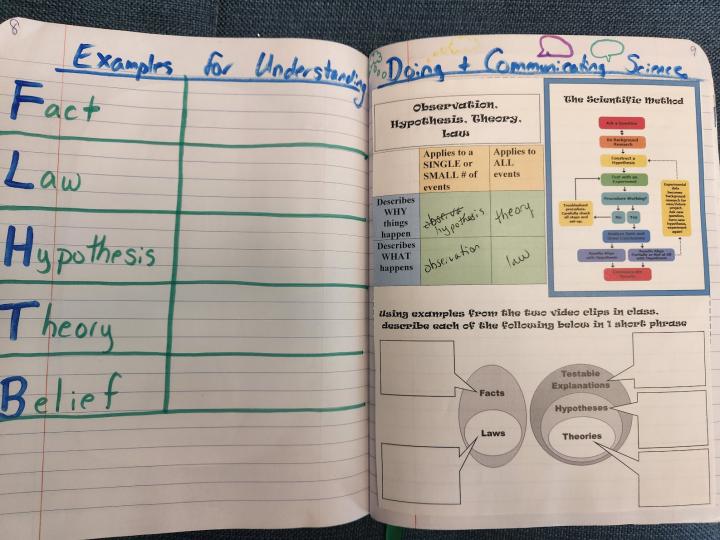 8
Examples for Understanding
Fact
Law
Hypothesis
Theory
Belief
9
Doing + Communicating Science
Observation,
Hypothesis, Theory,
Law
Applies to a
SINGLE or
SMALL # of
events
Applies to
ALL
events
Describes
WHY
things
happen
hypothesis
theory
Describes
WHAT
happens
observation
law
The Scientific Method
Ask a Question
Do Background
Research
Construct a
Hypothesis
Test with an
Experiment
Procedure Working?
No
Yes
Troubleshoot
procedure.
Carefully check
all steps and
set-up.
Experimental
data
becomes
background
research for
new/future
project.
Ask new
question,
form new
hypothesis,
experiment
again!
Analyze Data and
Draw Conclusions
Results Align
with Hypothesis
Results Align
Partially or Not at All
with Hypothesis
Communicate
Results
Using examples from the two video clips in class,
describe each of the following below in 1 short phrase
Facts
Laws
Testable
Explanations
Hypotheses
Theories